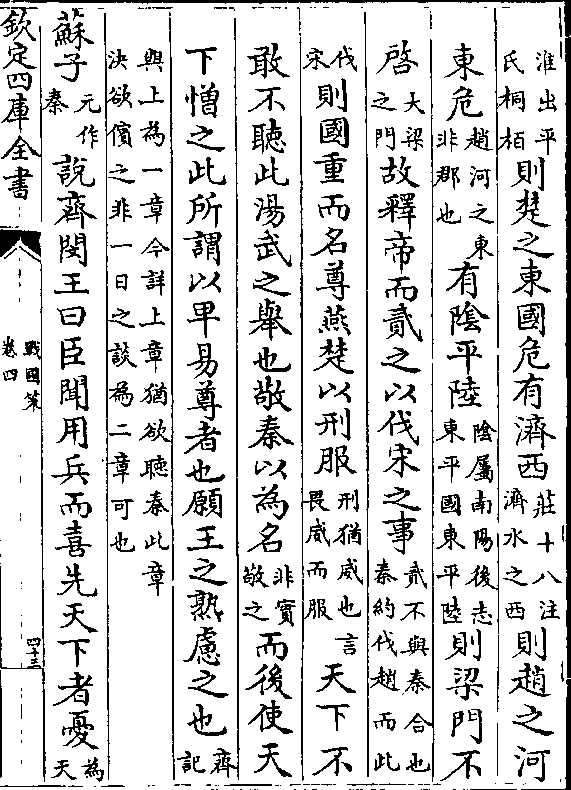 淮出平氏桐栢則楚之東國危有濟西莊十八注濟水之西則趙之河
東危趙河之東非郡也有陰平陸陰屬南陽後志東平國東平陸則梁門不
啓大梁之門故釋帝而貳之以伐宋之事貳不與秦合也秦約伐趙而此
伐宋則國重而名尊燕楚以刑服刑猶威也言畏威而服天下不
敢不聽此湯武之舉也敬秦以為名非實敬之而後使天
下憎之此所謂以卑易尊者也願王之熟慮之也齊記
與上為一章今詳上章猶欲聽秦此章決欲儐之非一日之談為二章可也
蘇子元作秦說齊閔王曰臣聞用兵而喜先天下者憂為天
欽定四庫全書
戰國策
卷四
四十三